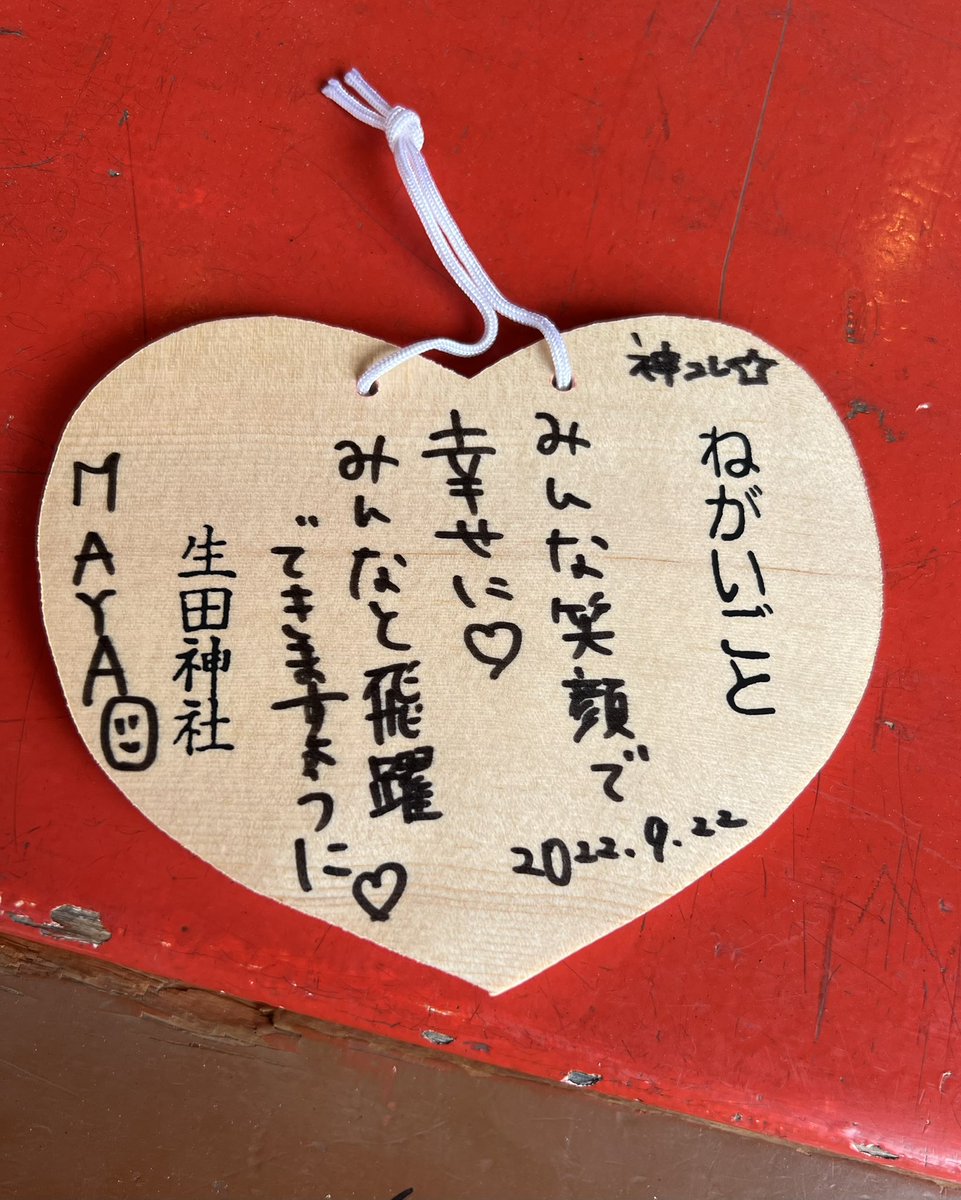 神コレ☆
ねがいごと
みんな笑顔で
幸せに♡
みんなと飛躍
できますように♡
2022.9.22
生田神社
MAYA